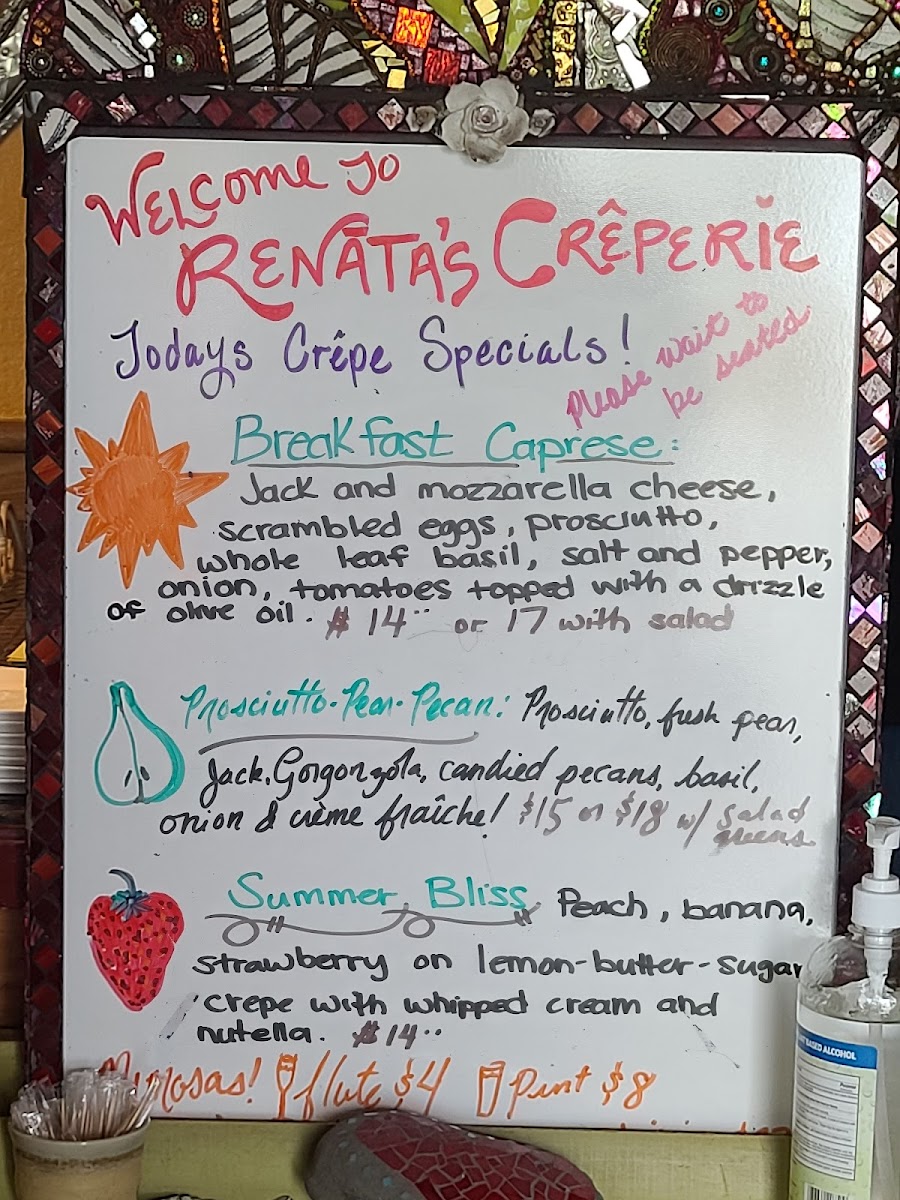 WELCOME TO
RENATA'S CRÊPERIE
Todays Crêpe Specials!
Please wait to
be seated
Breakfast Caprese:
Jack and mozzarella cheese,
scrambled eggs, prosciutto,
whole leaf basil, salt and pepper,
onion, tomatoes topped with a drizzle
of olive oil. $14.. or 17 with salad
Prosciutto-Pear-Pecan: Prosciutto, fresh pear,
Jack, Gorgonzola, candied pecans, basil,
onion & crème fraîche! $15 or $18 w/ salad
greens
Summer Bliss Peach, banana,
strawberry on lemon-butter-sugar
crepe with whipped cream and
nutella. $14..
Mimosas! flute $4 Pint $8
BASED ALCOHOL